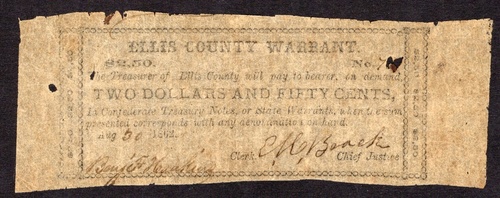 ELLIS COUNTY WARRANT.
$2.50. No. 7
The Treasurer of Ellis County will pay to bearer, on demand,
TWO DOLLARS AND FIFTY CENTS,
In Confederate Treasury Notes, or State Warrants, when the sum
presented corresponds with any denomination on hand.
Aug 1862.
Clerk. Chief Justice